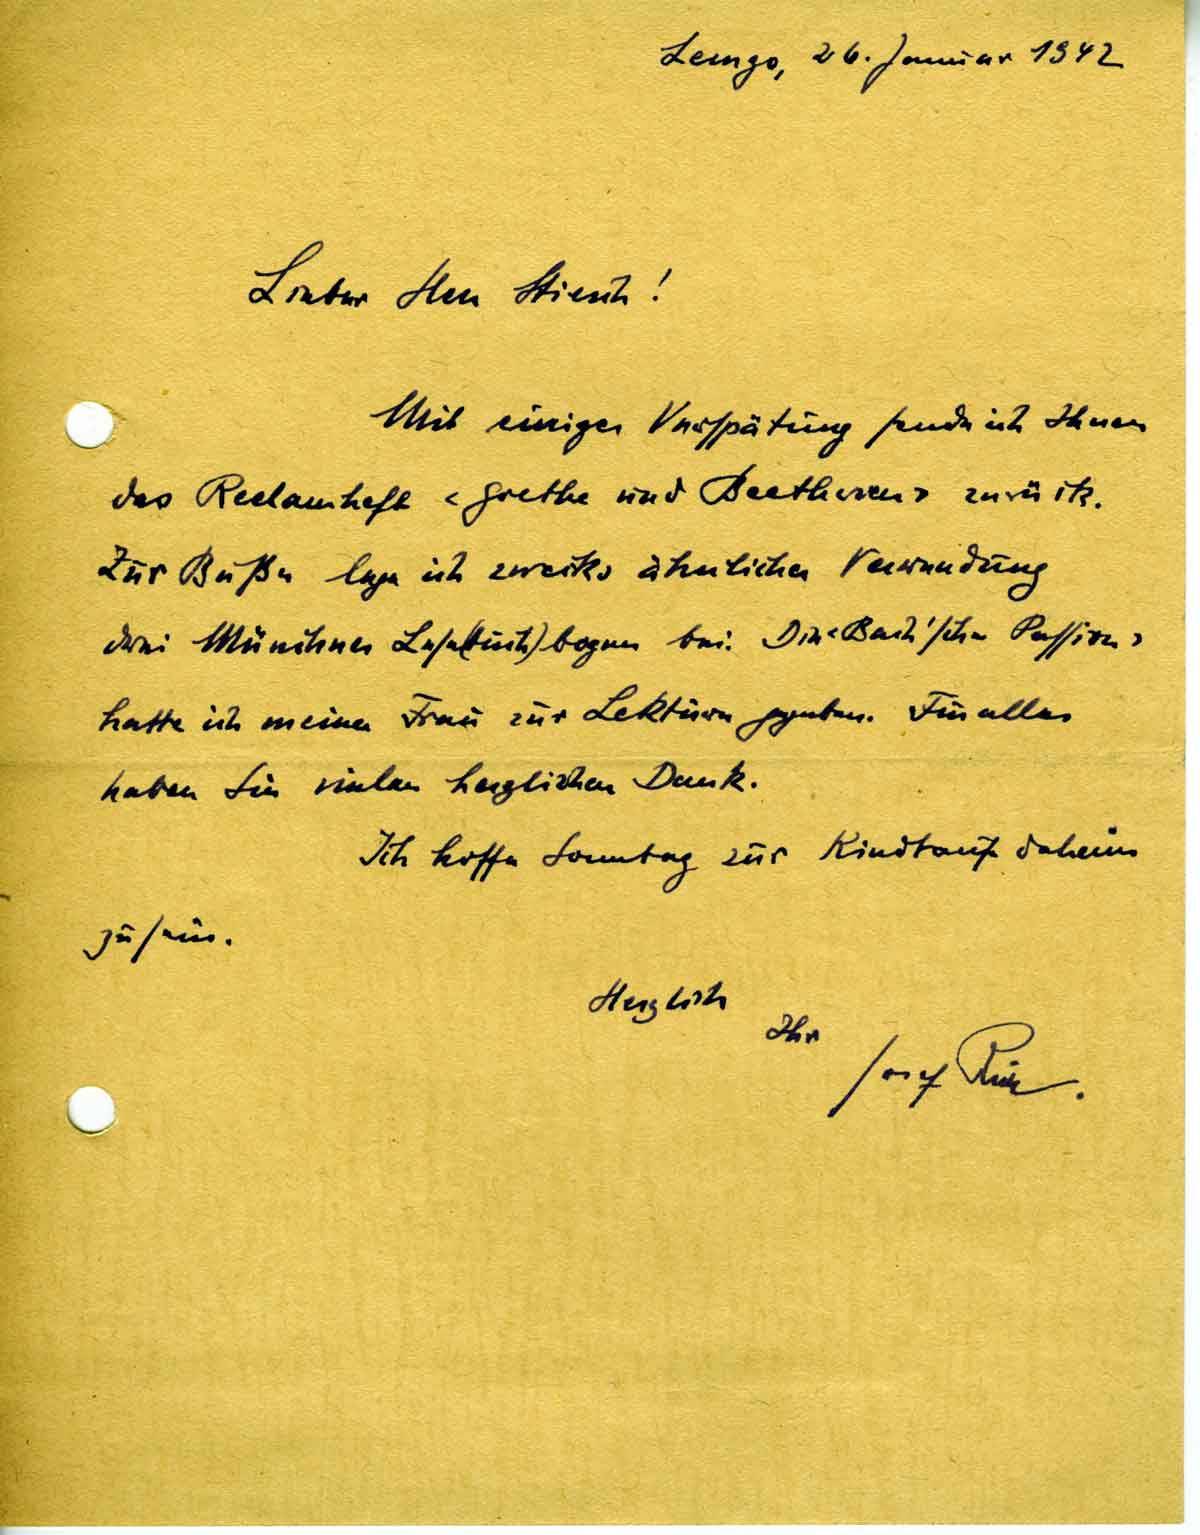 Lemgo, 26. Januar 1942
Lieber Herr
Mit einiger Verspätung sende ich Ihnen
das Reclamheft ‹Goethe und Beethoven› zurück.
Zur Buße lege ich zwecks ähnlicher Verwendung
drei Münchner Lese(buch)bogen bei. Die ‹Bach'sche Passion›
hatte ich meiner Frau zur Lektüre gegeben. Für alles
haben Sie vielen herzlichen Dank.
Ich hoffe Sonntag zur Kindtaufe daheim
zu sein.
Herzlich
Ihr
Josef